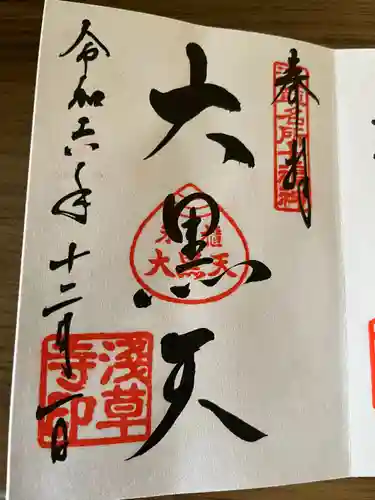 奉拝
浅草名所七福神
大黒天
米櫃
大黒天
令和六年十二月一日
浅草寺印